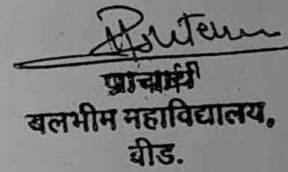 प्राचार्य
बलभीम महाविद्यालय,
बीड.